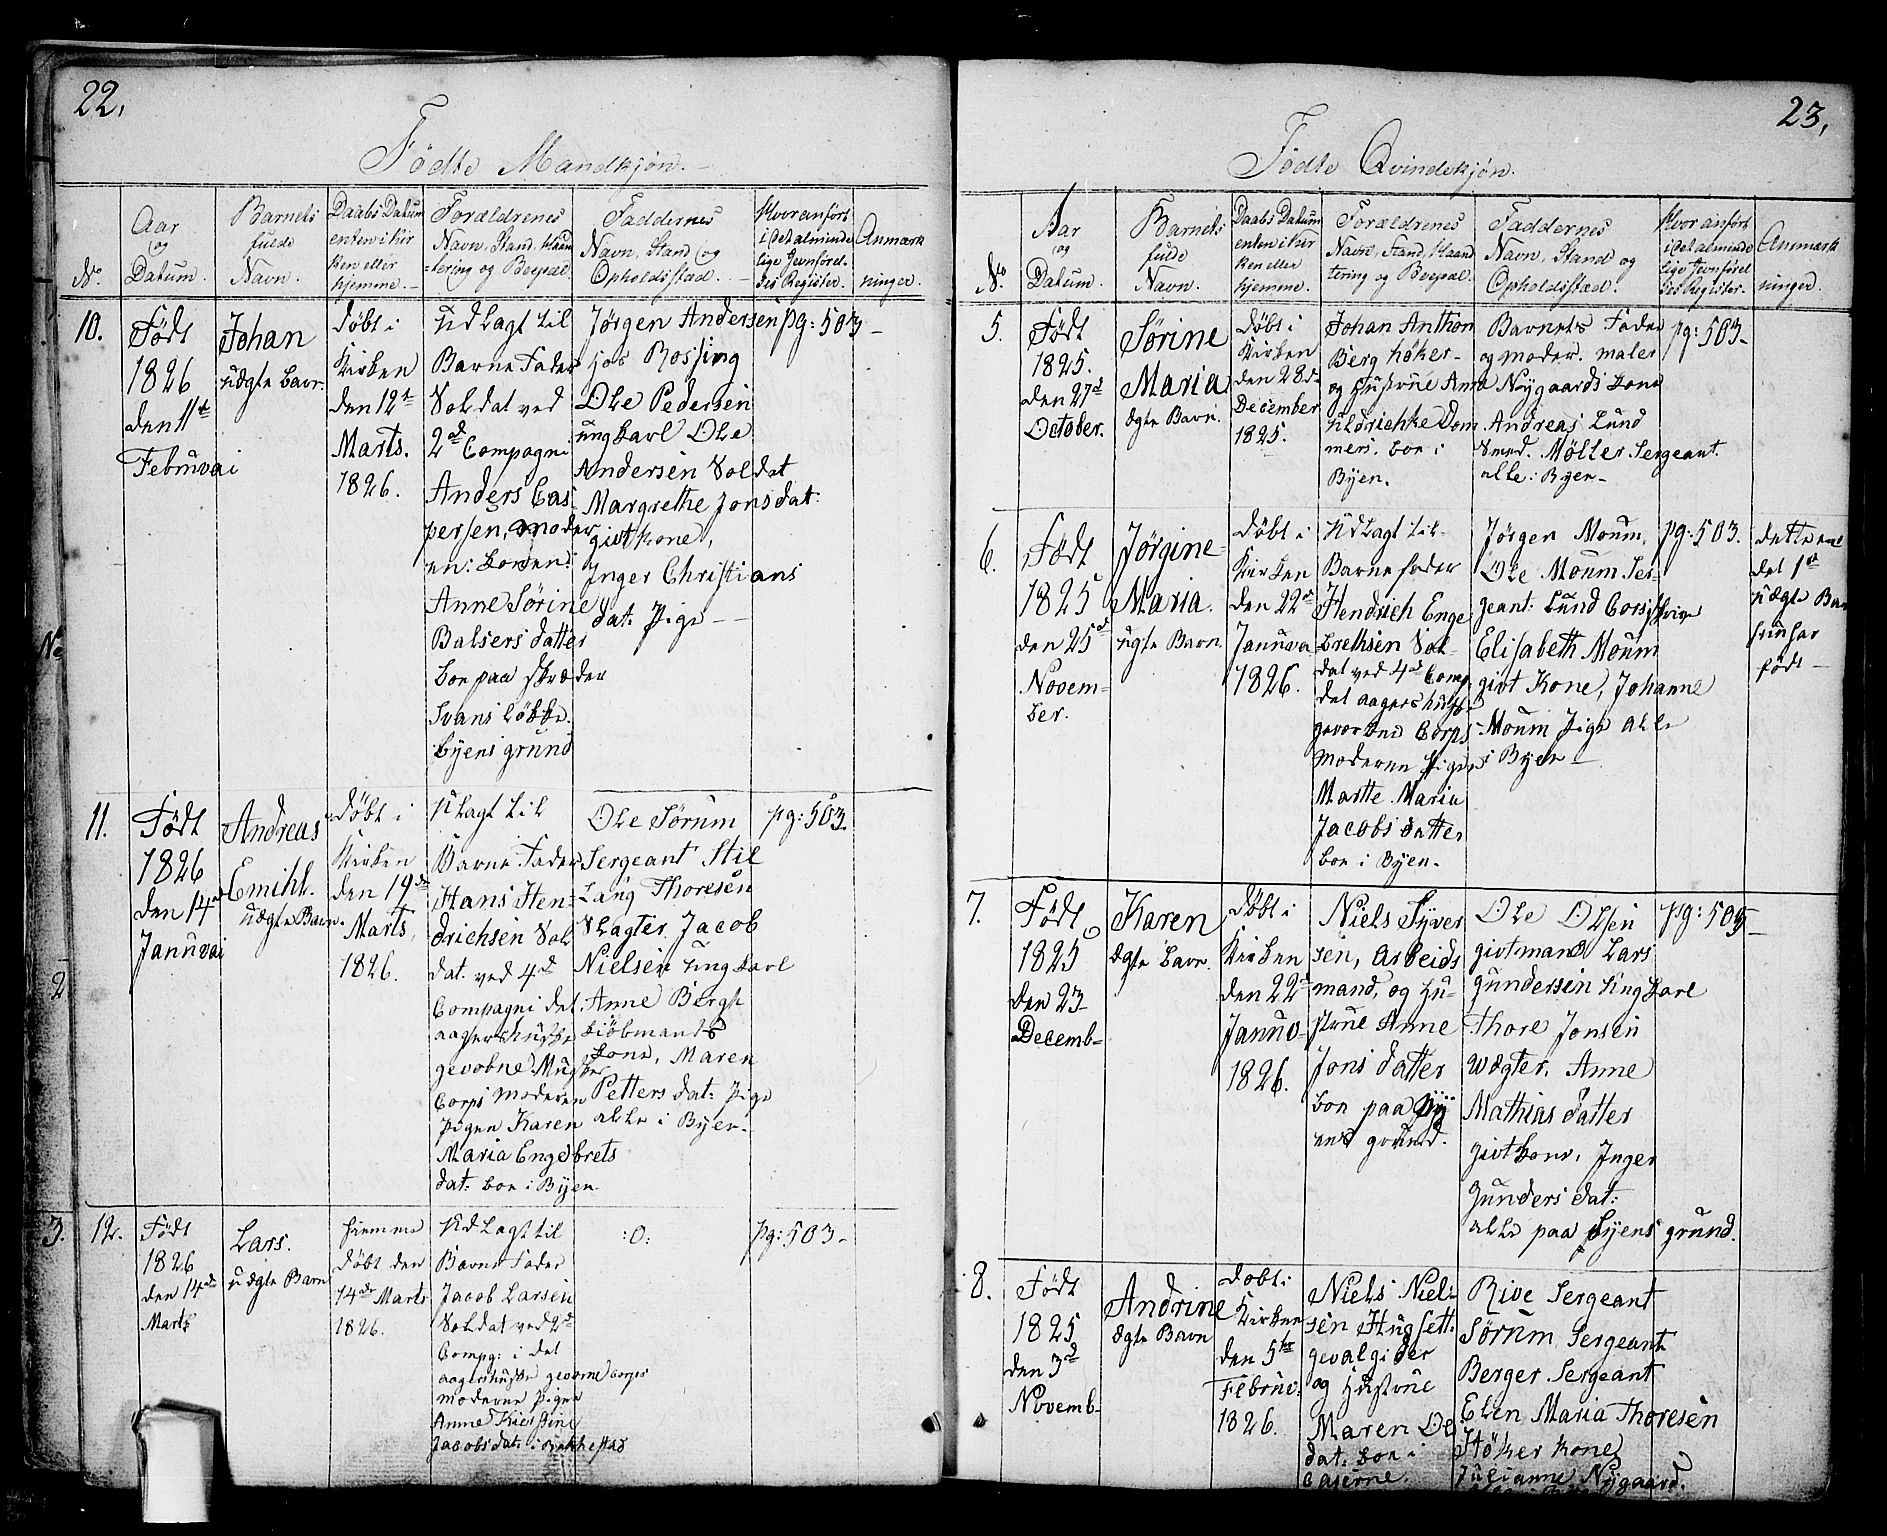 22.
Födte Mandkjön.
No.
Aar
og
Datum.
Barnets
fulde
Navn.
Daabs Datum
enten i Kir
ken eller
hjemme.
Forældrenes
Navn, Stand, Haand
tering og Boepæl
Faddernes
Navn, Stand og
Opholdsstæd.
Hvor anfört
i det alminde
lige Jevnförel
ses Register.
Anmærk
ninger.
10.
Födt
1826
den 11te
Februvai
Johan
uægte barn
döbt i
Kirken
den 12te
Marts.
1826.
Udlagt til
Barne Fader
Soldat ved
2d Compagni
Anders Cas
persen, moder
en:
Anne Sörine
Balsers datter
boe paa skræder
Svans lökke
byens grund
Jörgen Andersen
hos Rossing
Ole Pedersen
ungkarl Ole
Andersen Soldat
Margrethe Jonsdat:
givt kone,
Inger Christians
dat: Pige
pg: 503
11.
Födt
1826
den 14d
Januvai
Andreas
Emihl.
uægte Barn.
döbt i
Kirken
den 19de
Marts,
1826.
Ulagt til
Barne Fader
Hans Hen=
drichsen Sol
dat. ved 4d
Compagni det
aggershusske
gevobne Musker
Corps moderen
Pigen Karen
Maria Engebrets
dat: boe i Byen
Ole Sörum
Sergeant Stil
Lang Thoresen
Slagter, Jacob
Nielsen ungkarl
Anne Bergh
kiöbmands
kone, Maren
Petters dat: Pige
alle i Byen.
pg: 503.
12.
Födt
1826
den 14de
Marts
Lars.
uægte Barn
hiemme
döbt den
14de Marts
1826.
Udlagt til
Barne Fader
Jacob Larsen
Soldat ved 2d
Compg: i det
aggershuske gevorne Corps
moderne Pigen
Anne Kierstine
Jacobsdat: i Bakkestad
:0:
pg: 503-
23.
Födte Qvindekjön.
No.
Aar
og
Datum.
Barnets
fulde
Navn.
Daabs Datum
enten i Kir
ken eller
hjemme.
Forældrenes
Navn, Stand, Haand
tering og Boepæl.
Faddernes
Navn, Stand og
Opholdsstæd.
Hvor anfört
i det alminde
lige Jevnförel
ses Register.
Anmærk
ninger.
5.
Födt
1825.
den 27d
October.
Sörine
Maria
ægte Barn.
döbt i
Kirken
den 28de
December
1825.
Johan Anthon
Berg höker
og Hustrue Anne
Uldrichke Dom
mers. boe i
Byen.
Barnets Fader
og moder. maler
Nygaards kone
Andreas Lund
Smed. Möller Sergeant.
alle i Byen
pg: 503
6.
Födt
1825
den 25d
Novem=
ber.
Jörgine
Maria.
uægte Barn
döbt i
Kirken
den 22de
Januva
1826.
Udlagt til
Barnefader
Hendrich Enge
brethsen Sol
dat ved 4d Comp
det aagershuske
gevorbne Corps
moderen Pigen
Marthe Maria
Jacobsdatter
boe i Byen.
Jörgen Moum,
Ole Moum Ser
geant: Lund Corpskriver
Elisabeth Moum
givt Kone, Johanne
Moum Pige alle
i Byen
pg: 503.
dette er
det 1ste
uægte Barn
hun har
födt
7.
Födt
1825
den 23
Decemb
Karen
ægte barn.
döbt i
Kirken
den 22de
Januv
1826.
Niels Syver
sen, arbeids
mand, og Hu=
strue Anne
Jons datter
boe paa By
ens grund.
Ole Olsen
givtmand Lars
gundersen ungkarl
Thore Jonsen
wægter, Anne
Mathias datter
givt kone, Inger
Gunders dat:
alle paa byens grund.
pg: 503
8.
Födt
1825
den 3d
Novemb
Andrine
ægte Barn
döbt i
Kirken
den 5te
Februv:
1826.
Niels Niel
sen Hugsett
gevalgider
og Hustrue
Maren Ols
dat: boe i
Caserne.
Rive Sergeant
Sörum Sergeant
Berger Sergeant
Elen Maria Thoresen
Höker kone
Julianne Nygaard.